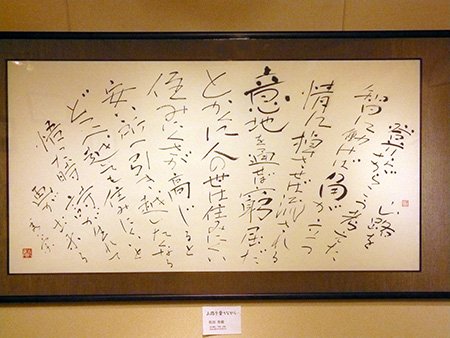 山路を
登りながらこう考えた
智に働けば角が立つ
情に棹させば流される
意地を通せば窮屈だ
とかくに人の世は住みにくい
住みにくさが高じると
安い所へ引き越したくなる
どこへ越しても住みにくいと
悟った時
詩が生れて
画が出来る
山路を登りながら